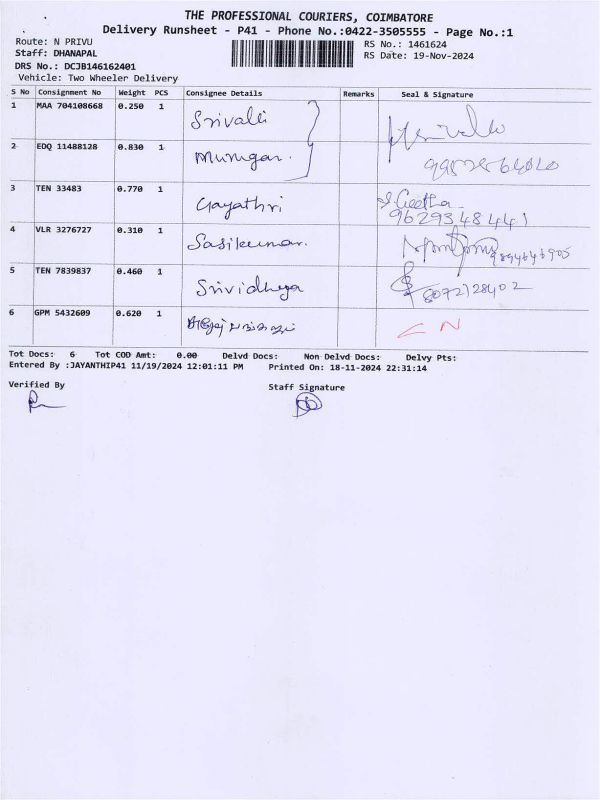 THE PROFESSIONAL COURIERS, COIMBATORE
Delivery Runsheet - P41 - Phone No.:0422-3505555 - Page No.:1
Route: N PRIVU
RS No.: 1461624
Staff: DHANAPAL
RS Date: 19-Nov-2024
DRS No.: DCJB146162401
Vehicle: Two Wheeler Delivery
S No Consignment No Weight PCS Consignee Details Remarks Seal & Signature
1 MAA 704108668 0.250 1 Srivalli
2 EDQ 11488128 0.830 1 Murugan.
3 TEN 33483 0.770 1 Gayathri S. Geetha
9629348441
4 VLR 3276727 0.310 1 Sasikumar. 9894646905
5 TEN 7839837 0.460 1 Srividhya 8072128402
6 GPM 5432609 0.620 1 CN
Tot Docs: 6 Tot COD Amt: 0.00 Delvd Docs: Non Delvd Docs: Delvy Pts:
Entered By :JAYANTHIP41 11/19/2024 12:01:11 PM Printed On: 18-11-2024 22:31:14
Verified By
Staff Signature